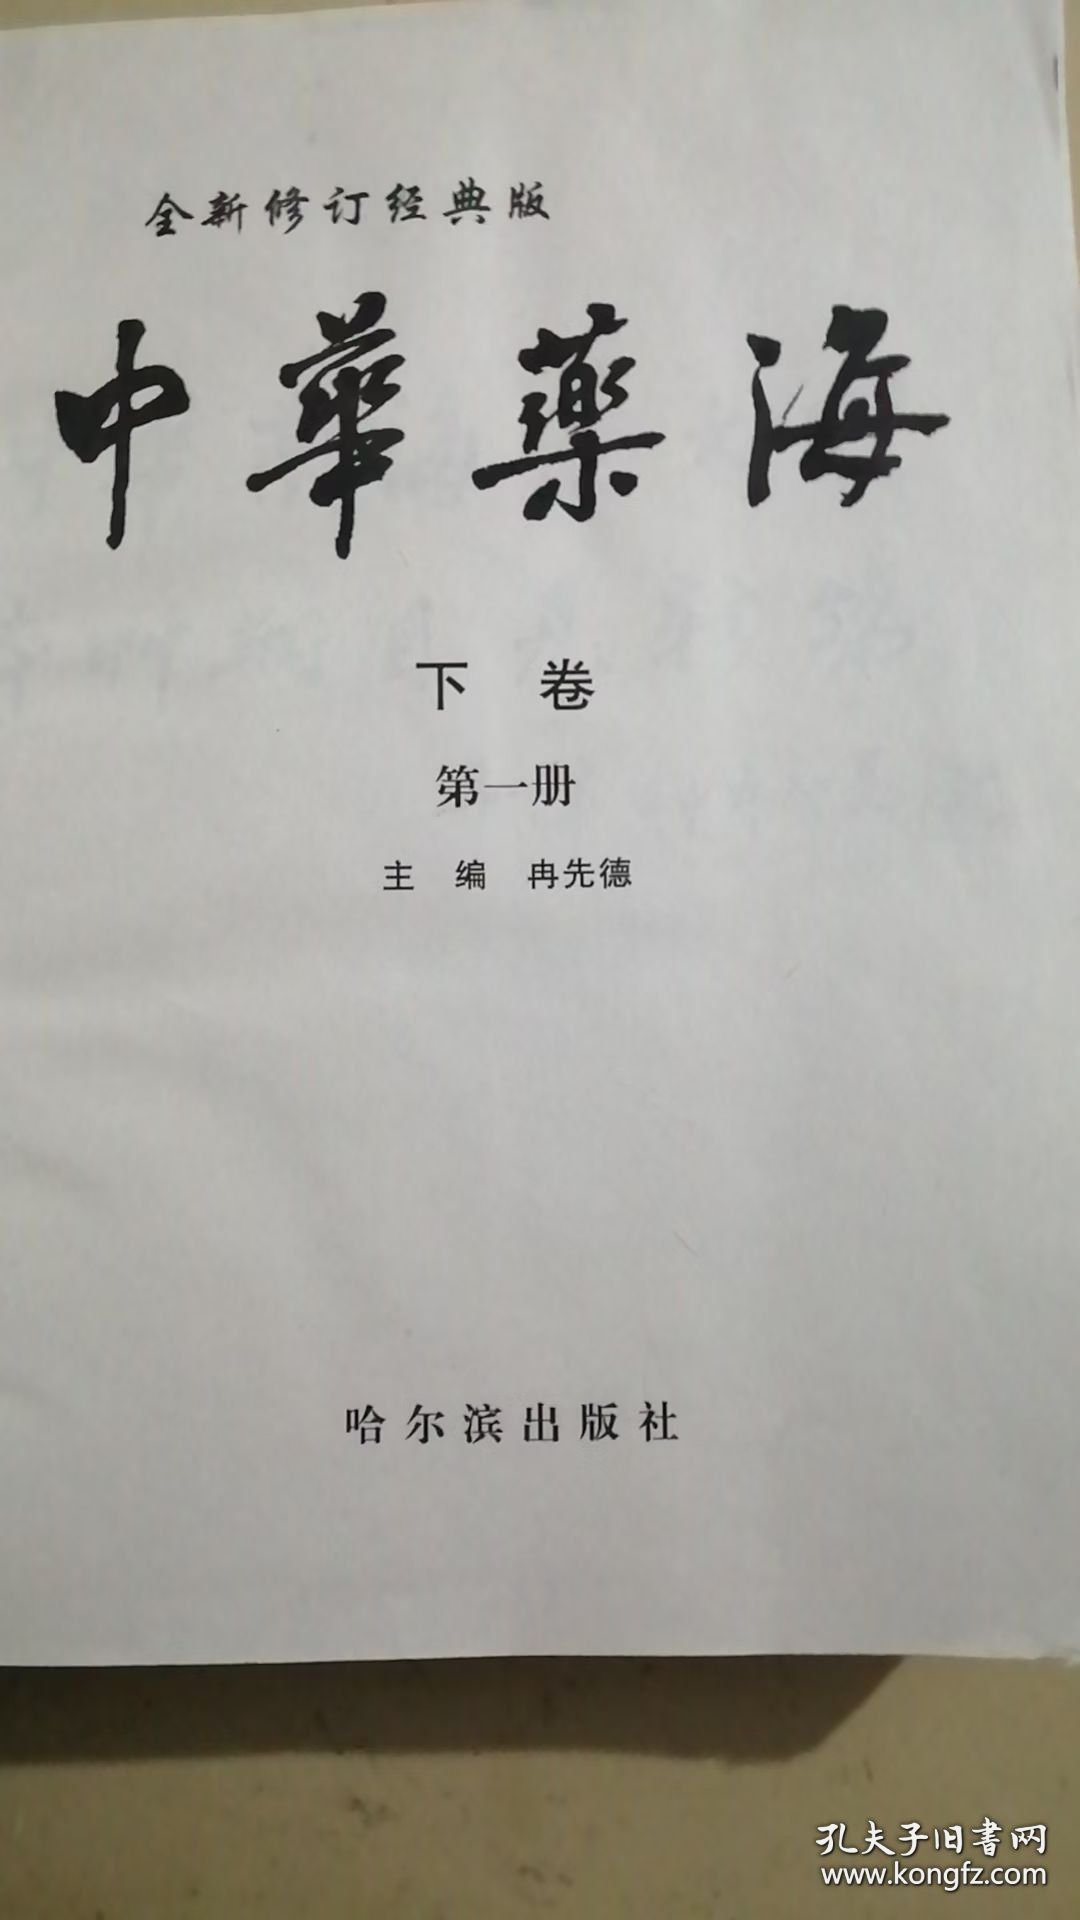 全新修订经典版
中華藥海
下 卷
第一册
主 编 冉先德
哈尔滨出版社
孔夫子旧書网
www.kongfz.com